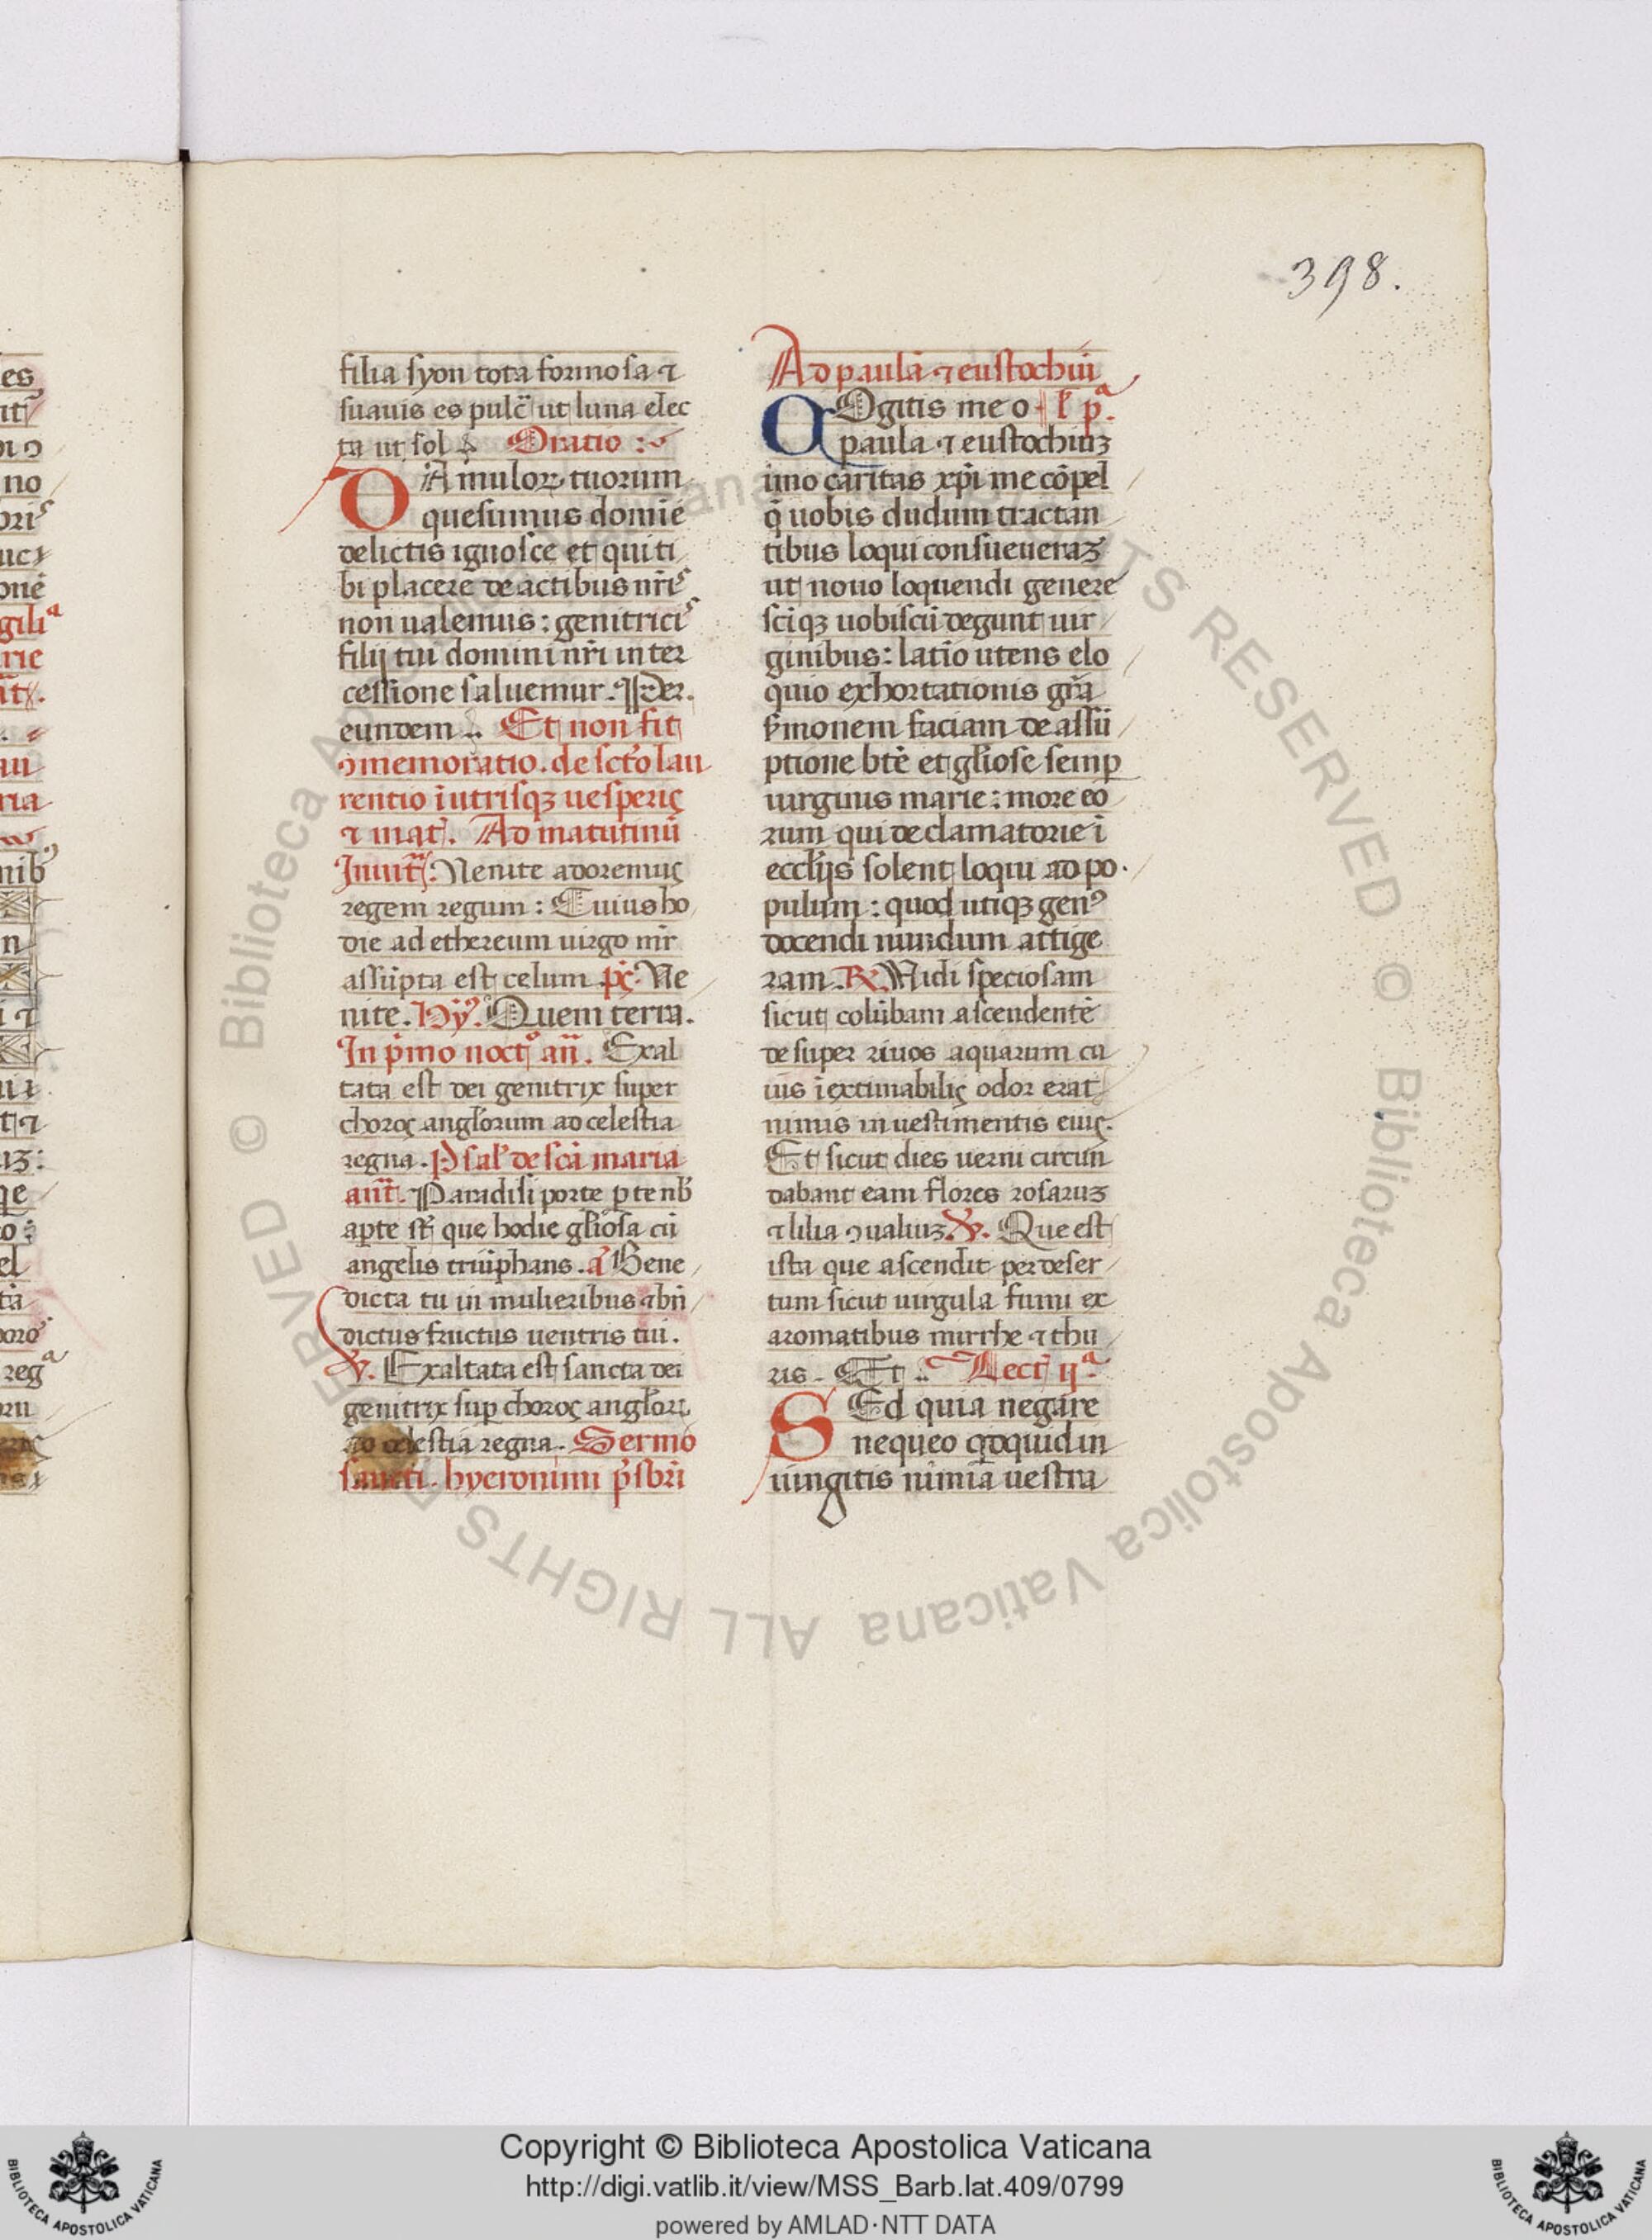 398.
filia syon tota formosa ⁊
suauis es pulc̄ ut luna elec
ta ut sol Oratio :
FAmuloꝝ tuorum
quesumus domīe
delictis ignosce et qui ti
bi placere de actibus nr̄is
non ualemus : genitricis
filij tui domini nr̄i inter
cessione saluemur. Per.
eundem .. Et non fit
ꝯmemoratio. de scto lau
rentio ī utrisqꝫ uesperis
⁊ mat̄. Ad matutinū
Inuit̄. Venite adoremus
regem regum : Cuius ho
die ad ethereum uirgo mr̄
assūpta est celum. ps. Ve
nite. Hy. Quem terra.
In pimo noct̉ an̄. Exal
tata est dei genitrix super
choros anglorum ad celestia
regna. Psal̉ de sc̄a maria
ant̄. Paradisi porte p te nb̄
aꝑte st̄ que hodie gl̄iosa cū
angelis triūphans. a Bene
dicta tu in mulieribus ⁊ bn̄
dictus fructus uentris tui.
℣. Exaltata est sancta dei
genitrix suꝑ choros angloꝝ
ad celestia regna. Sermo
sancti. hyeronimi p̄sbr̄i
Ad paulā ⁊ eustochiū
COgitis me o l̄ pª.
paula ⁊ eustochiuꝫ
imo caritas xp̄i me cōpel
q̄ uobis dudum tractan
tibus loqui consueueraꝫ
ut nouo loquendi genere
sc̄is qꝫ uobiscū degunt uir
ginibus : latīo utens elo
quio exhortationis gr̄a
s̄monem faciam de assū
ptione bt̄e et gl̄iose semꝑ
uirginis marie : more eo
rum qui declamatorie ī
eccl̄ijs solent loqui ad po
pulum : quod utiqꝫ genꝰ
docendi nundum attige
ram. ℟. Vidi speciosam
sicut colūbam ascendentē
desuper riuos aquarum cu
ius īextimabilis odor erat
nimis in uestimentis eius.
Et sicut dies uerni circun
dabant eam flores rosaruꝫ
⁊ lilia ꝯualiuꝫ. ℣. Que est
ista que ascendit per deser
tum sicut uirgula fumi ex
aromatibus mirrhe ⁊ thu
ris. Et .. Lect̄ ijª.
SEd quia negare
nequeo qꝺquid in
iungitis nimiā uestra
Copyright © Biblioteca Apostolica Vaticana
http://digi.vatlib.it/view/MSS_Barb.lat.409/0799
powered by AMLAD·NTT DATA
BIBLIOTECA APOSTOLICA VATICANA
BIBLIOTECA APOSTOLICA VATICANA
© Biblioteca Apostolica Vaticana ALL RIGHTS RESERVED © Biblioteca Apostolica Vaticana ALL RIGHTS RESERVED